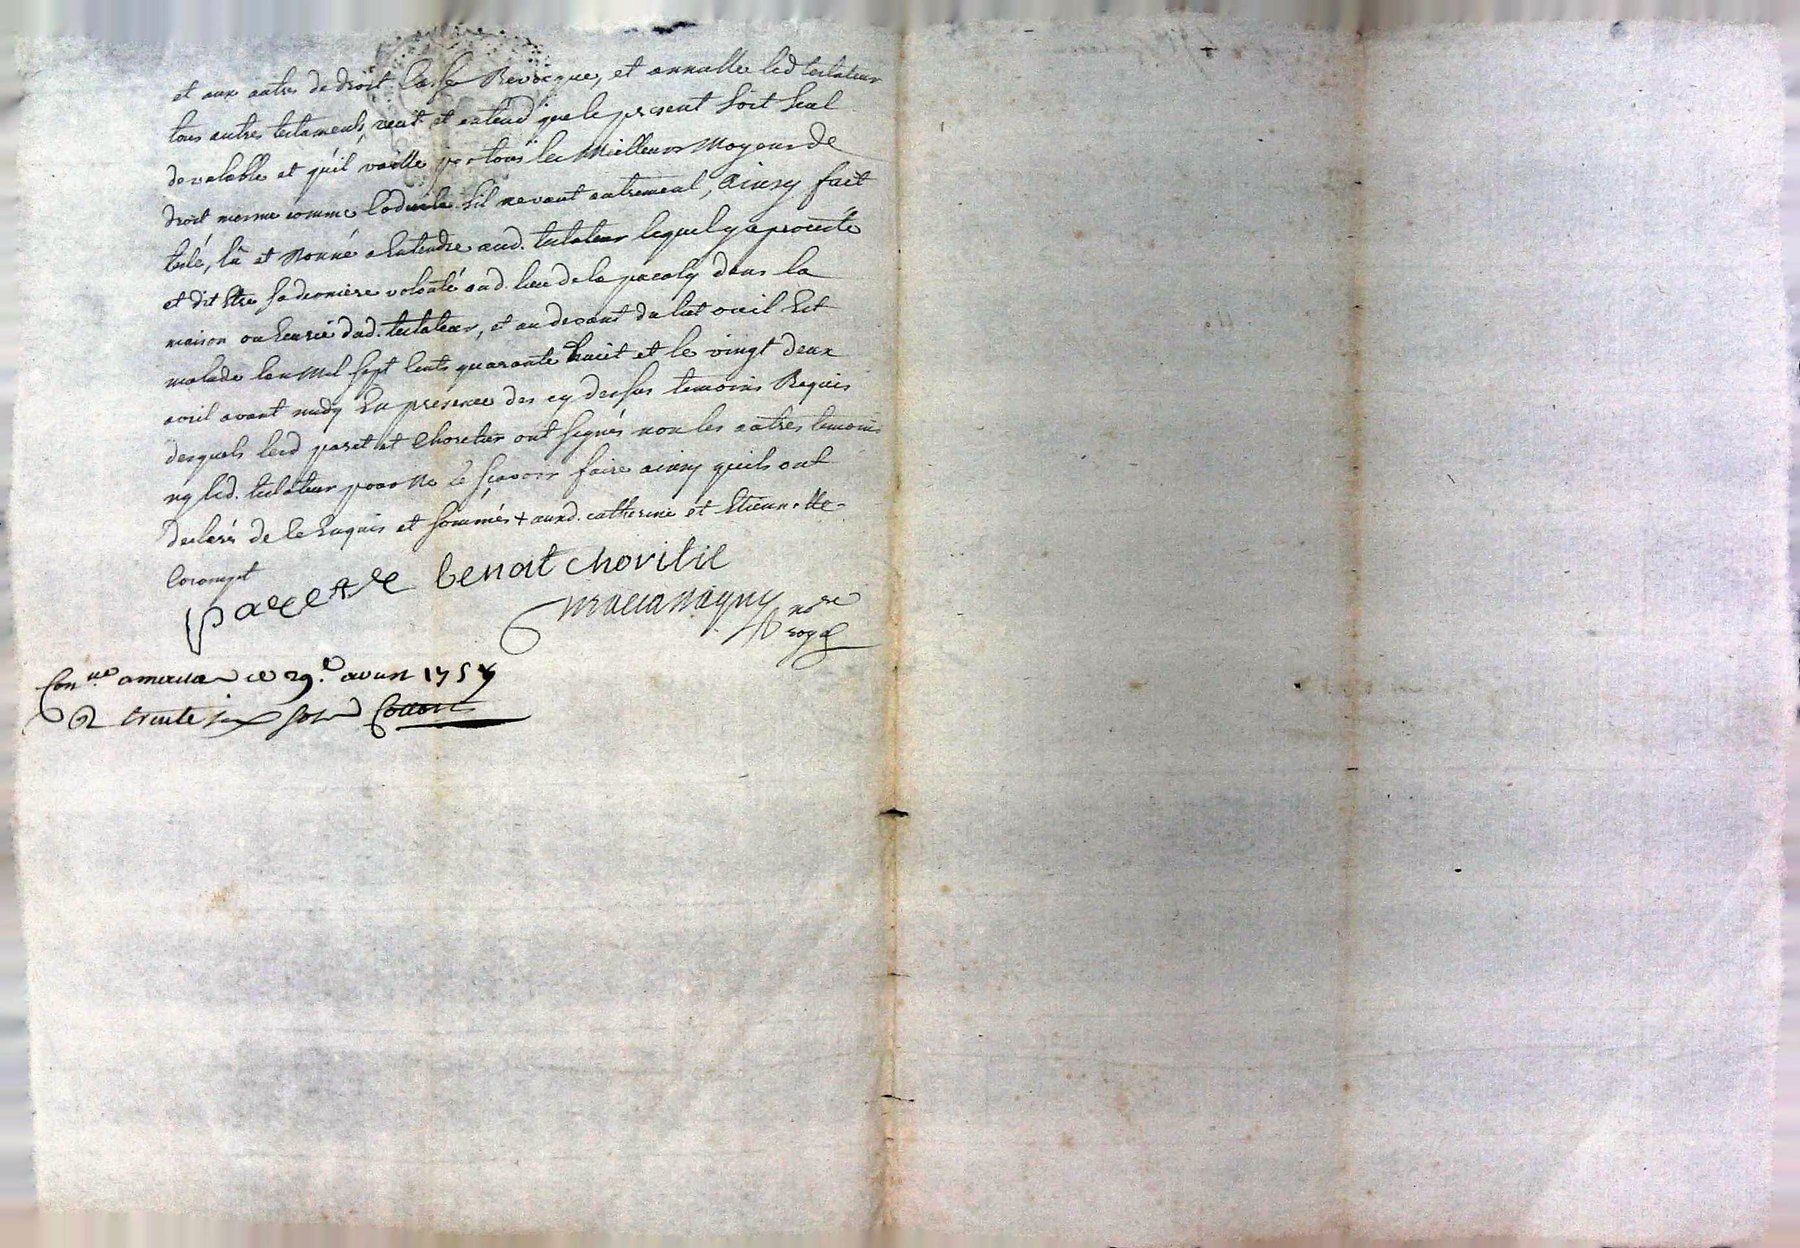 et aux autres de droit Casse Revocque, et annulle led testateur
tous autres testaments, veut et entend que le present soit seul
de valable et qu'il vaille par tous les Meilleurs Moyens de
droit mesme comme Codicile sil ne vaut autrement, Ainsy fait
testé, lû et donné a Entendre aud. testateur lequel y a
et dit Etre sa derniere volonté aud. lieu de la pacaly dans la
maison ou dud. testateur, et au devant du lict ou il Est
malade lan Mil sept Cents quarante huict et le vingt deux
avril avant midy En presence des cy dessus temoins Requis
desquels led paret et Choretier ont signés non les autres temoins
ny led. testateur pour ne le sçavoir faire ainsy quils ont
declaré de ce Enquis et sommés + auxd. catherine et Etiennette
benoit choritié
nore
royal
Con.lle a ce 29.e avril 175
R trente six sols